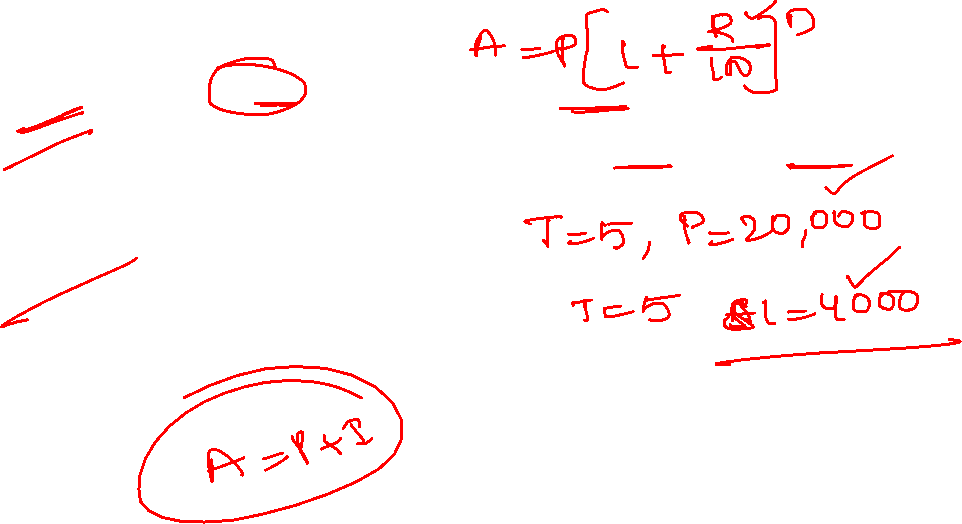 A = P[1 + R/100]^n
T=5, P=20,000
T=5 I=4000
A=P+I